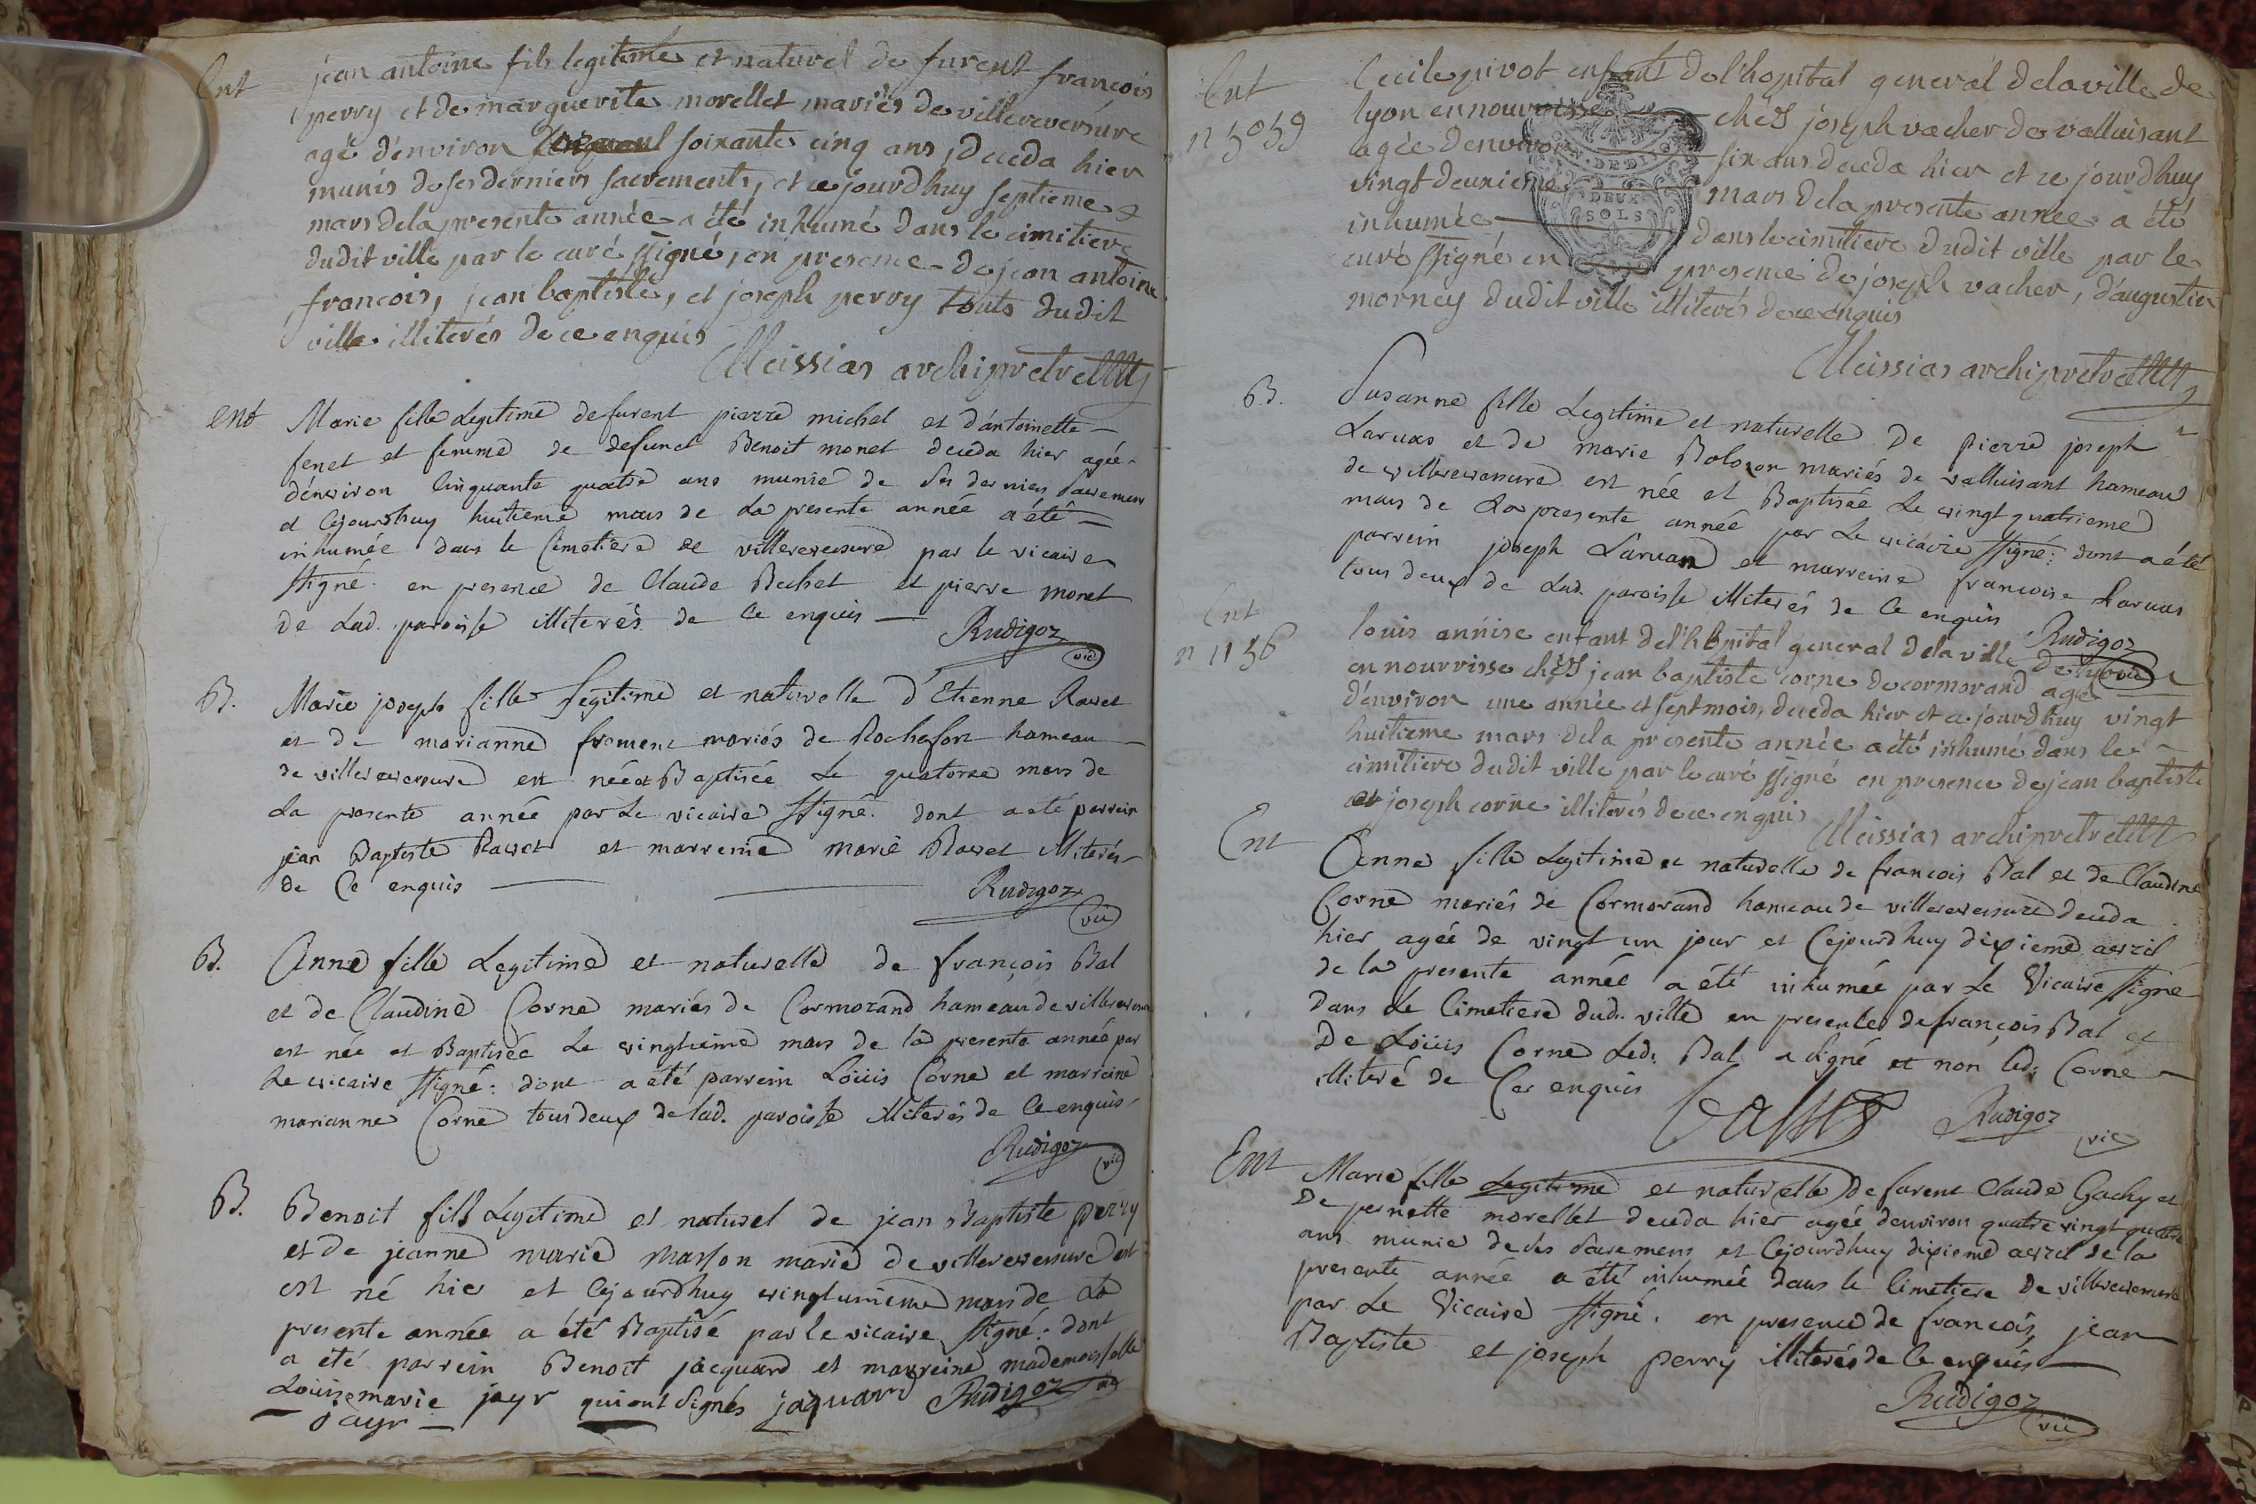 Ent
jean antoine fils legitime et naturel de furent francois
perry et de marguerite morellet mariés de villereversure
agé d'environ soixante cinq ans, deceda hier
munis de ses derniers sacrements, et ce jourd'huy septieme
mars de la presente année a été inhumé dans le cimitiere
dudit ville par le curé ssigné, en presence de jean antoine
francois, jean baptiste, et joseph perry touts dudit
ville illiterés de ce enquis
Meissias archipretre
ent
Marie fille Legitime de furent pierre michel et d'antoinette
fenet et femme de defunct Benoit monet deceda hier agée
d'environ Cinquante quatre ans munie de ses derniers Sacremens
et Cejourdhuy huitieme mars de La presente année a été
inhumée dans le Cimetiere de villereversure par le vicaire
ssigné. en presence de Claude Bechet et pierre monet
de Lad. paroisse illiterés de Ce enquis
Rudigoz
vic
B.
Marie joseph fille Legitime et naturelle d'Etienne Ravet
et de marianne froment mariés de Rochefort hameau
de villereversure est née et Baptisée Le quatorze mars de
La presente année par Le vicaire ssigné. dont a été parrein
jean Baptiste Ravet et marreine marie Ravet illiterés
de Ce enquis
Rudigoz
vic
B.
Anne fille Legitime et naturelle de françois Bal
et de Claudine Corne mariés de Cormorand hameau de villereversure
est née et Baptisée Le vingtieme mars de la presente année par
Le vicaire ssigné: dont a été parrein Loüis Corne et marreine
marianne Corne tous deux de lad. paroisse illiterés de Ce enquis
Rudigoz
vic
B.
Benoit fils Legitime et naturel de jean Baptiste perry
et de jeanne marie Masson marié de villereversure est
est né hier et Cejourdhuy vingtunieme mars de La
presente année a été Baptisé par le vicaire ssigné: dont
a été parrein Benoit jacquard et marreine mademoisselle
Loüise marie jayr qui ont signés jaquard Rudigoz vic
jayr
Ent
n 5059
Cecile pivot enfant de l'hopital general de la ville de
lyon en nourrisse chés joseph vacher de valluisant
agée d'environ six ans deceda hier et ce jourdhuy
vingt deuxieme mars de la presente année a été
inhumée dans le cimitiere dudit ville par le
curé ssigné en presence de joseph vacher, d'augustin
morney dudit ville illiterés de ce enquis
DEUX
SOLS
Meissias archipretre
B.
Susanne fille Legitime et naturelle De pierre joseph
Laruas et de marie Bolozon mariés de valluisant hameau
de villereversure est née et Baptisée Le vingt quatrieme
mars de La presente année par Le vicaire ssigné: dont a été
parrein joseph Laruas et marreine francoise Laruas
tous deux de Lad. paroisse illiterés de Ce enquis
Rudigoz
vic
Ent
n 1136
louis annise enfant de l'hopital general de la ville de lyon
en nourrisse chés jean baptiste corne de cormorand agé
d'environ une année et sept mois, deceda hier et ce jourdhuy vingt
huitieme mars de la presente année a été inhumé dans le
cimitiere dudit ville par le curé ssigné en presence de jean baptiste
et joseph corne illiterés de ce enquis
Meissias archipretre
Ent
Anne fille Legitime et naturelle de francois Bal et de Claudine
Corne mariés de Cormorand hameau de villereversure deceda
hier agée de vingt un jour et Cejourdhuy dixieme avril
de la presente année a été inhumée par Le Vicaire ssigné
Dans Le Cimetiere dud. ville en presence de françois Bal et
De Loüis Corne Led. Bal a signé et non led. Corne
illiteré de Ce enquis
Rudigoz
vic
Ent
Marie fille Legitime et naturelle De furent Claude Gachy et
De pernette morellet deceda hier agée d'environ quatre vingt quatre
ans munie de ses Sacremens et Cejourdhuy dixieme avril de la
presente année a été inhumée dans le Cimetiere De villereversure
par Le Vicaire ssigné. en presence de francois, jean
Baptiste et joseph perry illiterés de Ce enquis
Rudigoz
vic